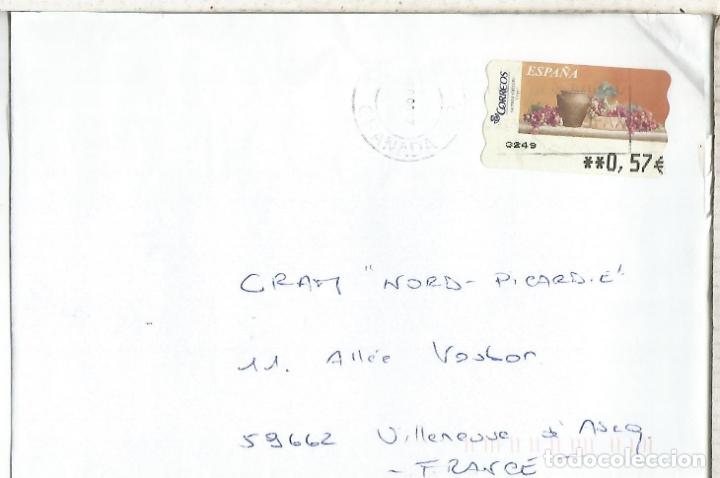 ESPAÑA
CORREOS
0249
**0,57€
GRANADA
CRAM "NORD-PICARDIE"
11. Allée Vauban
59662 Villeneuve d'Ascq
- FRANCE
todocoleccion